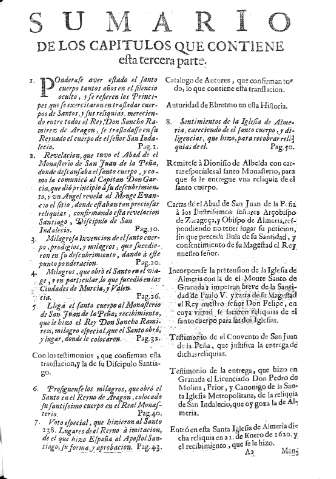 SUMARIO
DE LOS CAPITULOS QUE CONTIENE
esta tercera parte.
1. Ponderase aver estado el santo
cuerpo tantos años en el silencio
oculto, y se refieren los Princi-
pes que se exercitaron en trasladar cuer-
pos de Santos, y sus reliquias, merecien-
do entre todos el Rey Don Sancho Ra-
mirez de Aragon, se trasladasse en su
Reynado el cuerpo de el señor San Inda-
lecio. Pag.1.
2. Revelacion, que tuvo el Abad de el
Monasterio de San Juan de la Peña,
donde descansava el santo cuerpo, y co-
mo la comunicò al Capitan Don Gar-
cia, que diò principio à su descubrimien-
to, y un Angel revela al Monge Evan-
cio el sitio, donde estavan tan preciosas
reliquias, confirmando esta revelacion
Santiago, Discipulo de San
Indalecio. Pag.10.
3. Milagrosa invencion de el santo cuer-
po, prodigios, y milagros, que sucedie-
ron en su descubrimiento, dando à este
punto ponderacion. Pag.20.
4. Milagros, que obrò el Santo en el via-
ge, y en particular lo que sucediò en las
Ciudades de Murcia, y Valen-
cia. Pag.26.
5. Llega el santo cuerpo al Monasterio
de San Juan de la Peña; recibimiento,
que le hizo el Rey Don Sancho Rami-
rez, milagro especial, que el Santo obrò,
y lugar, donde le colocaron. Pag.32.
Con los testimonios, que confirman esta
translacion, y la de su Discipulo Santia-
go.
6. Prosiguense los milagros, que obrò el
Santo en el Reyno de Aragon, colocado
su santissimo cuerpo en el Real Monas-
terio. Pag.40.
7. Voto especial, que hizieron al Santo
238. Lugares de el Reyno à imitacion,
de el que hizo España al Apostol San-
tiago, su forma, y aprobacion. Pag.43.
Catalogo de Autores, que confirman to-
do, lo que contiene esta translacion.
Autoridad de
en esta Historia.
8. Sentimientos de la Iglesia de Alme-
ria, careciendo de el santo cuerpo, y di-
ligencias, que hizo, para recobrar reli-
quias de el. Pag.50.
Remitese à Dionisio de Albelda con car-
tas especiales al santo Monasterio, para
que se le entregue una reliquia de el
santo cuerpo.
Cartas de el Abad de San Juan de la Peña
à los Arçobispo
de Zaragoça, y Obispo de Almeria, res-
pondiendo no tener lugar su peticion,
sin que preceda Bula de su Santidad, y
consentimiento de la Magestad de el Rey
nuestro señor.
Incorporase la pretension de la Iglesia de
Almeria con la de el Monte Santo de
Granada à impetrar breve de la Santi-
dad de Paulo V. y carta de su Magestad
el Rey nuestro señor Don Felipe, en
cuya virtud se sacaron reliquias de el
santo cuerpo para las dos Iglesias.
Testimonio de el Convento de San Juan
de la Peña, que justifica la entrega de
dichas reliquias.
Testimonio de la entrega, que hizo en
Granada el Licenciado Don Pedro de
Molina, Prior, y Canonigo de la San-
ta Iglesia Metropolitana, de la reliquia
de San Indalecio, que oy goza la de Al-
meria.
Entrò en esta Santa Iglesia de Almeria di-
cha reliquia en 21. de Enero de 1620. y
el recibimiento, que se la hizo.
A2